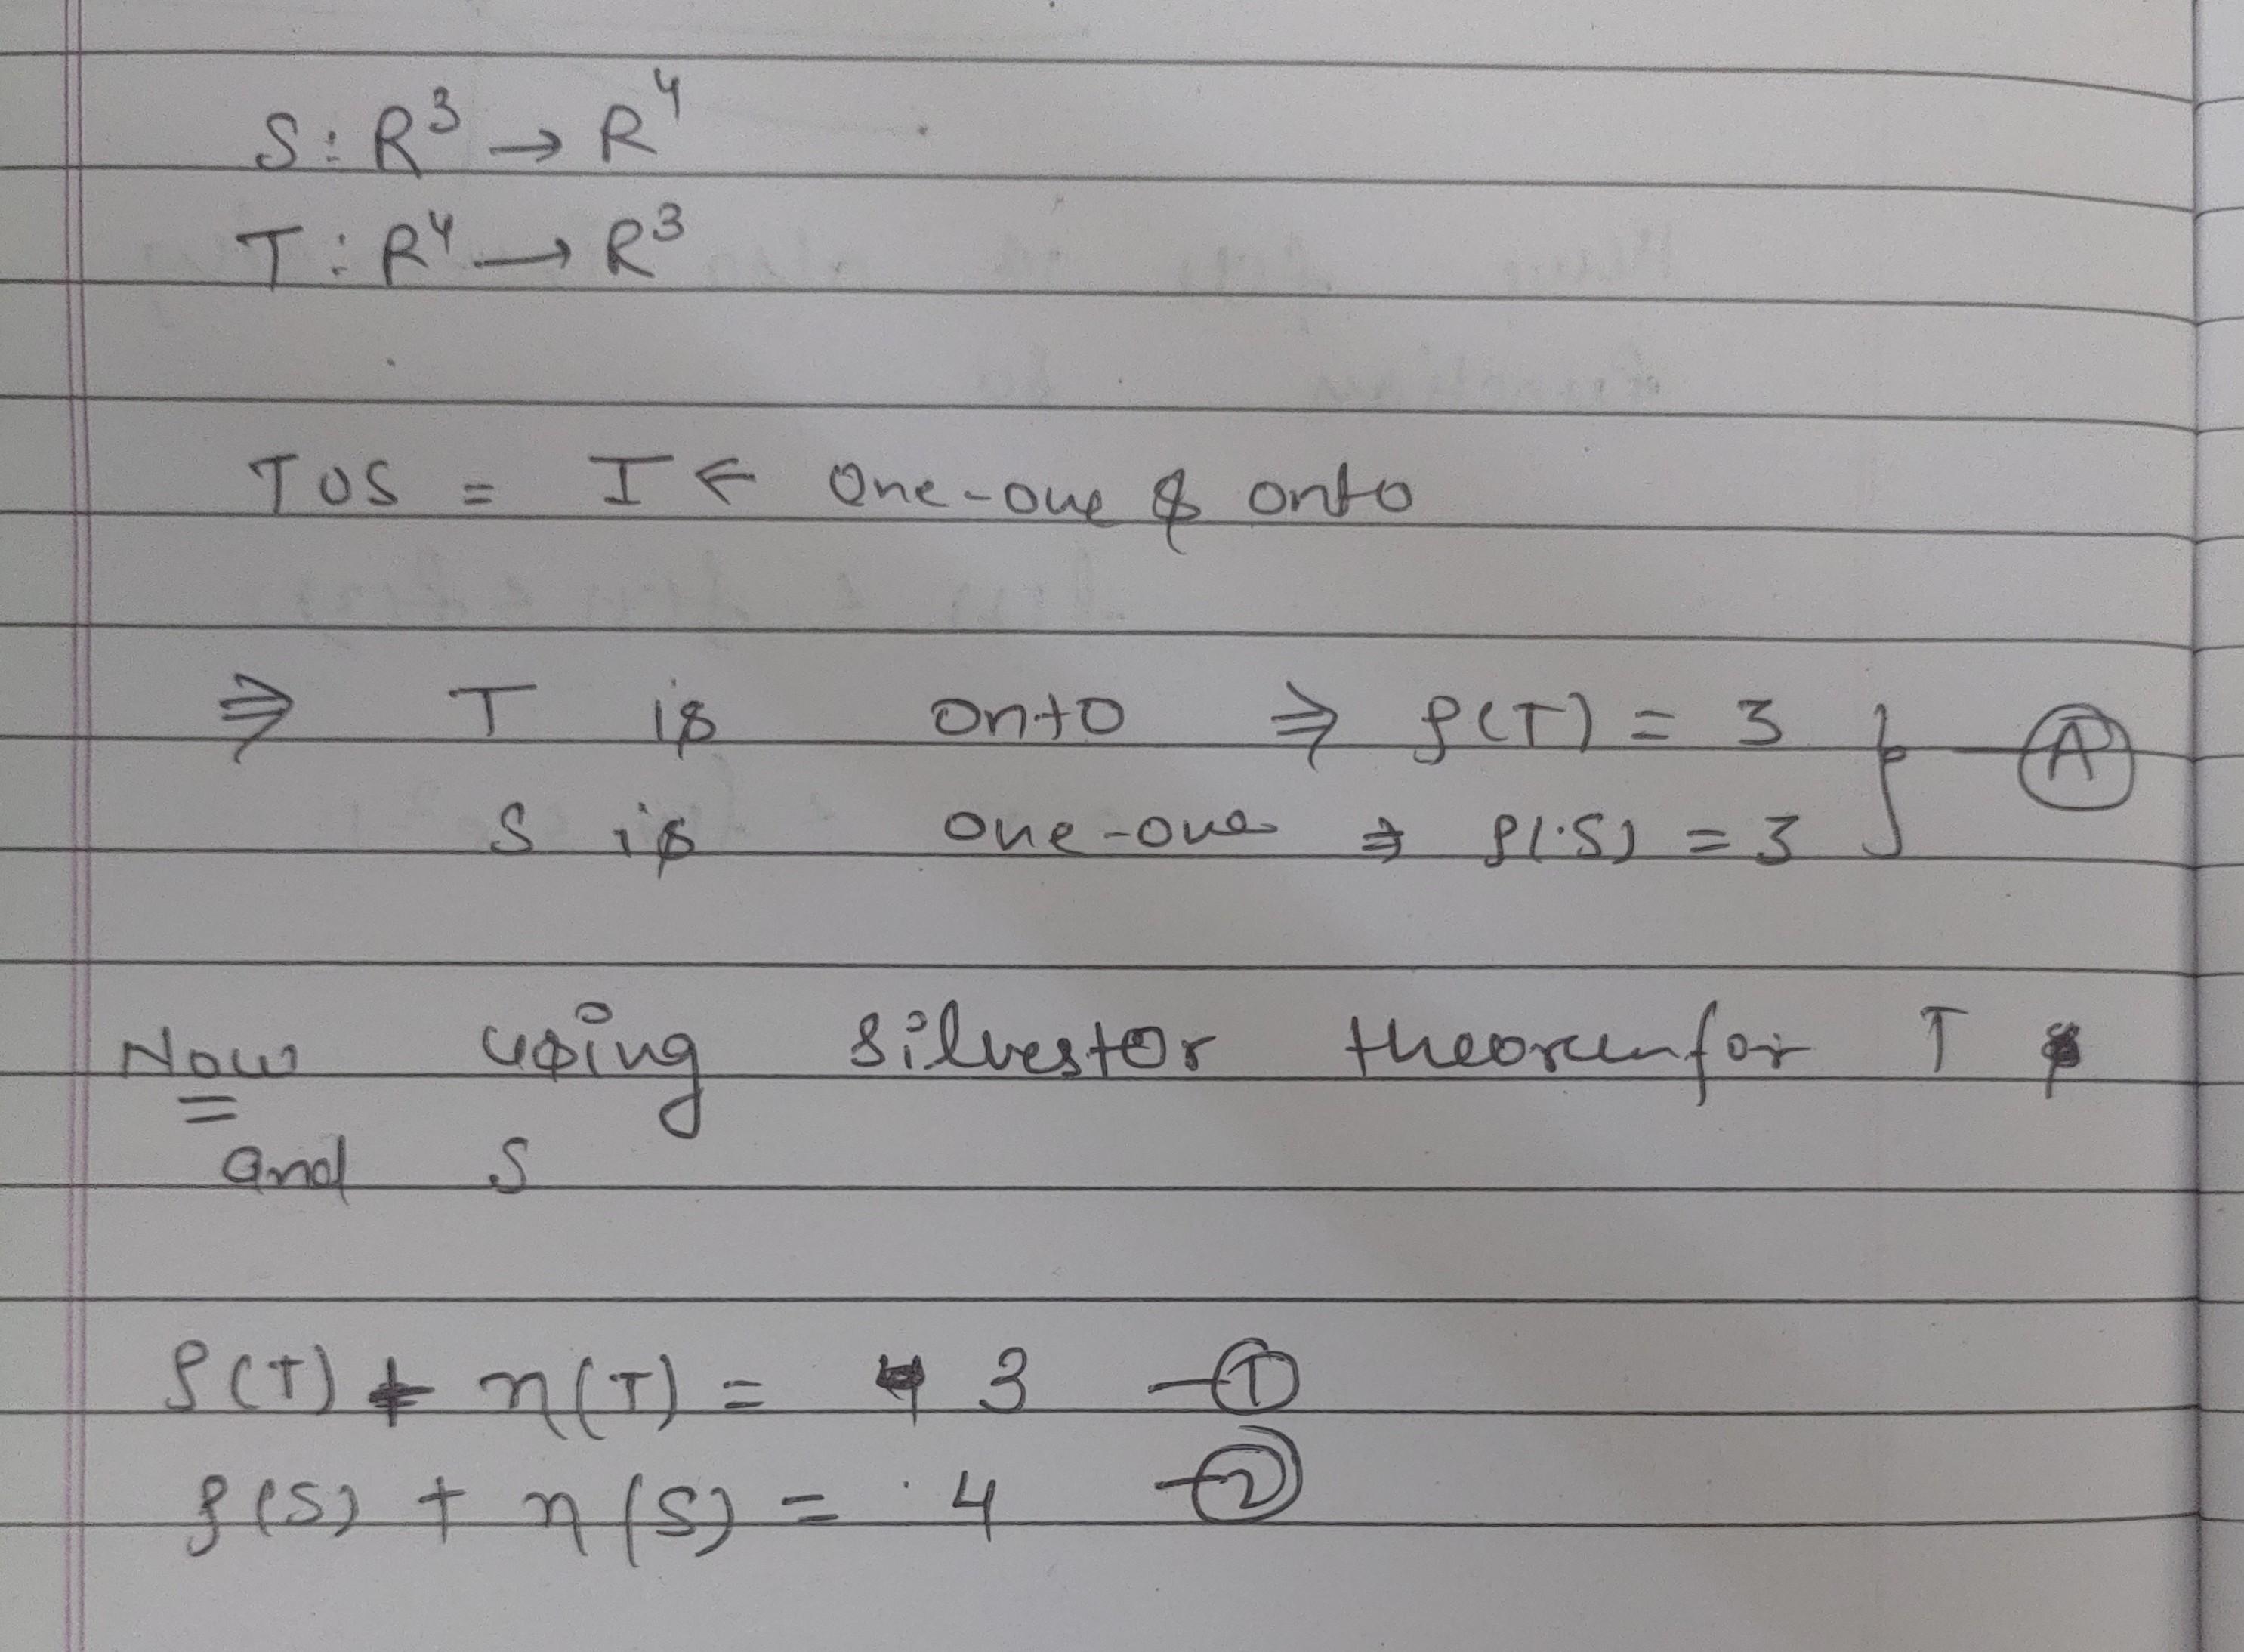 S : R³ → R⁴
T : R⁴ → R³
TOS = I ← One-one & onto
⇒ T is onto ⇒ ρ(T) = 3
S is one-one ⇒ ρ(S) = 3 } — Ⓐ
Now using Silvestor theorem for T
and S
ρ(T) + η(T) = 3 — ①
ρ(S) + η(S) = 4 — ②